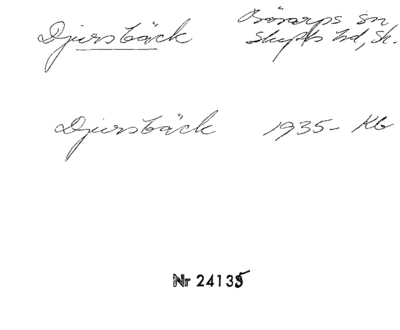 Djursbäck Börarps sn
Skytts hd, Sk.
Djursbäck 1935- Kb
Nr 24135